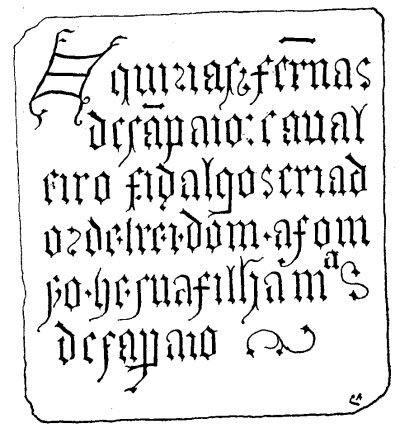 Aqui iaz fer̄nas
deſãpaio: caual
eiro fidalgos criad
or delrei·dom·afom
ſo·he ſua filha mª S
deſapaio